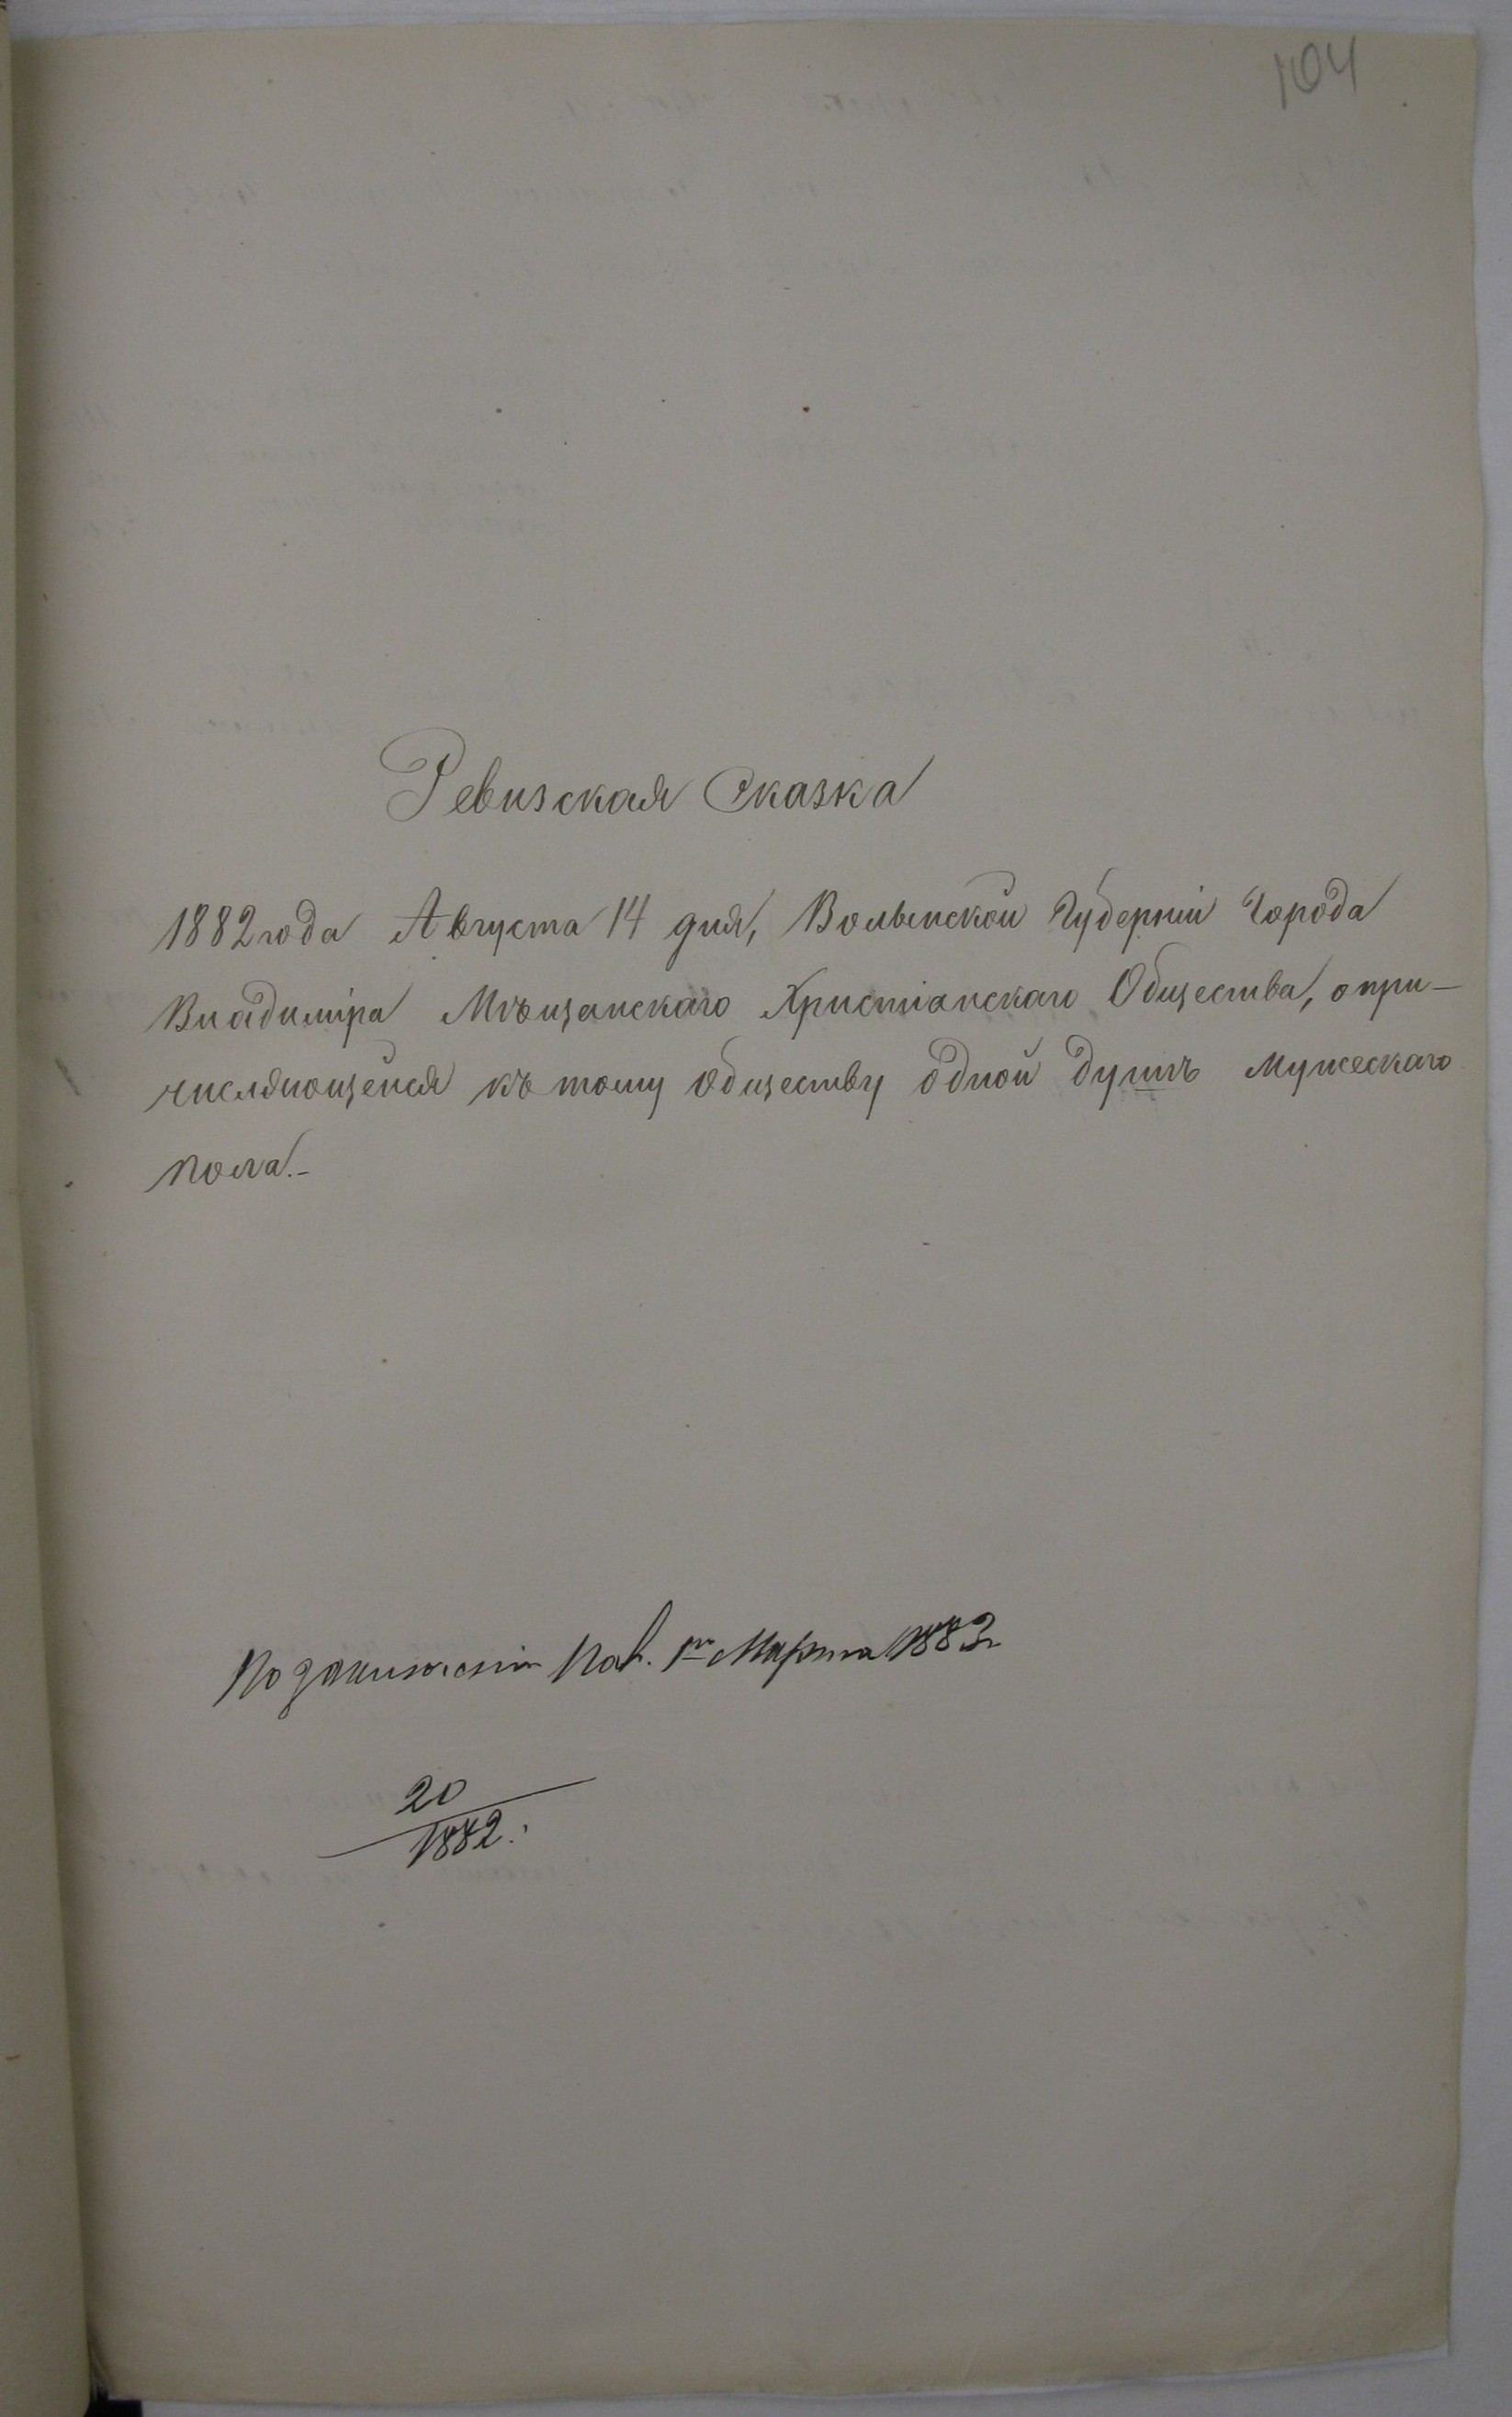 104
Ревизская Сказка
1882 года Августа 14 дня, Волынской Губерніи Города
Владиміра Мѣщанскаго Христіанскаго Общества, о при-
числяющейся къ тому обществу одной душѣ мужескаго
пола.-
По 1го Марта 1883г
20
1882.